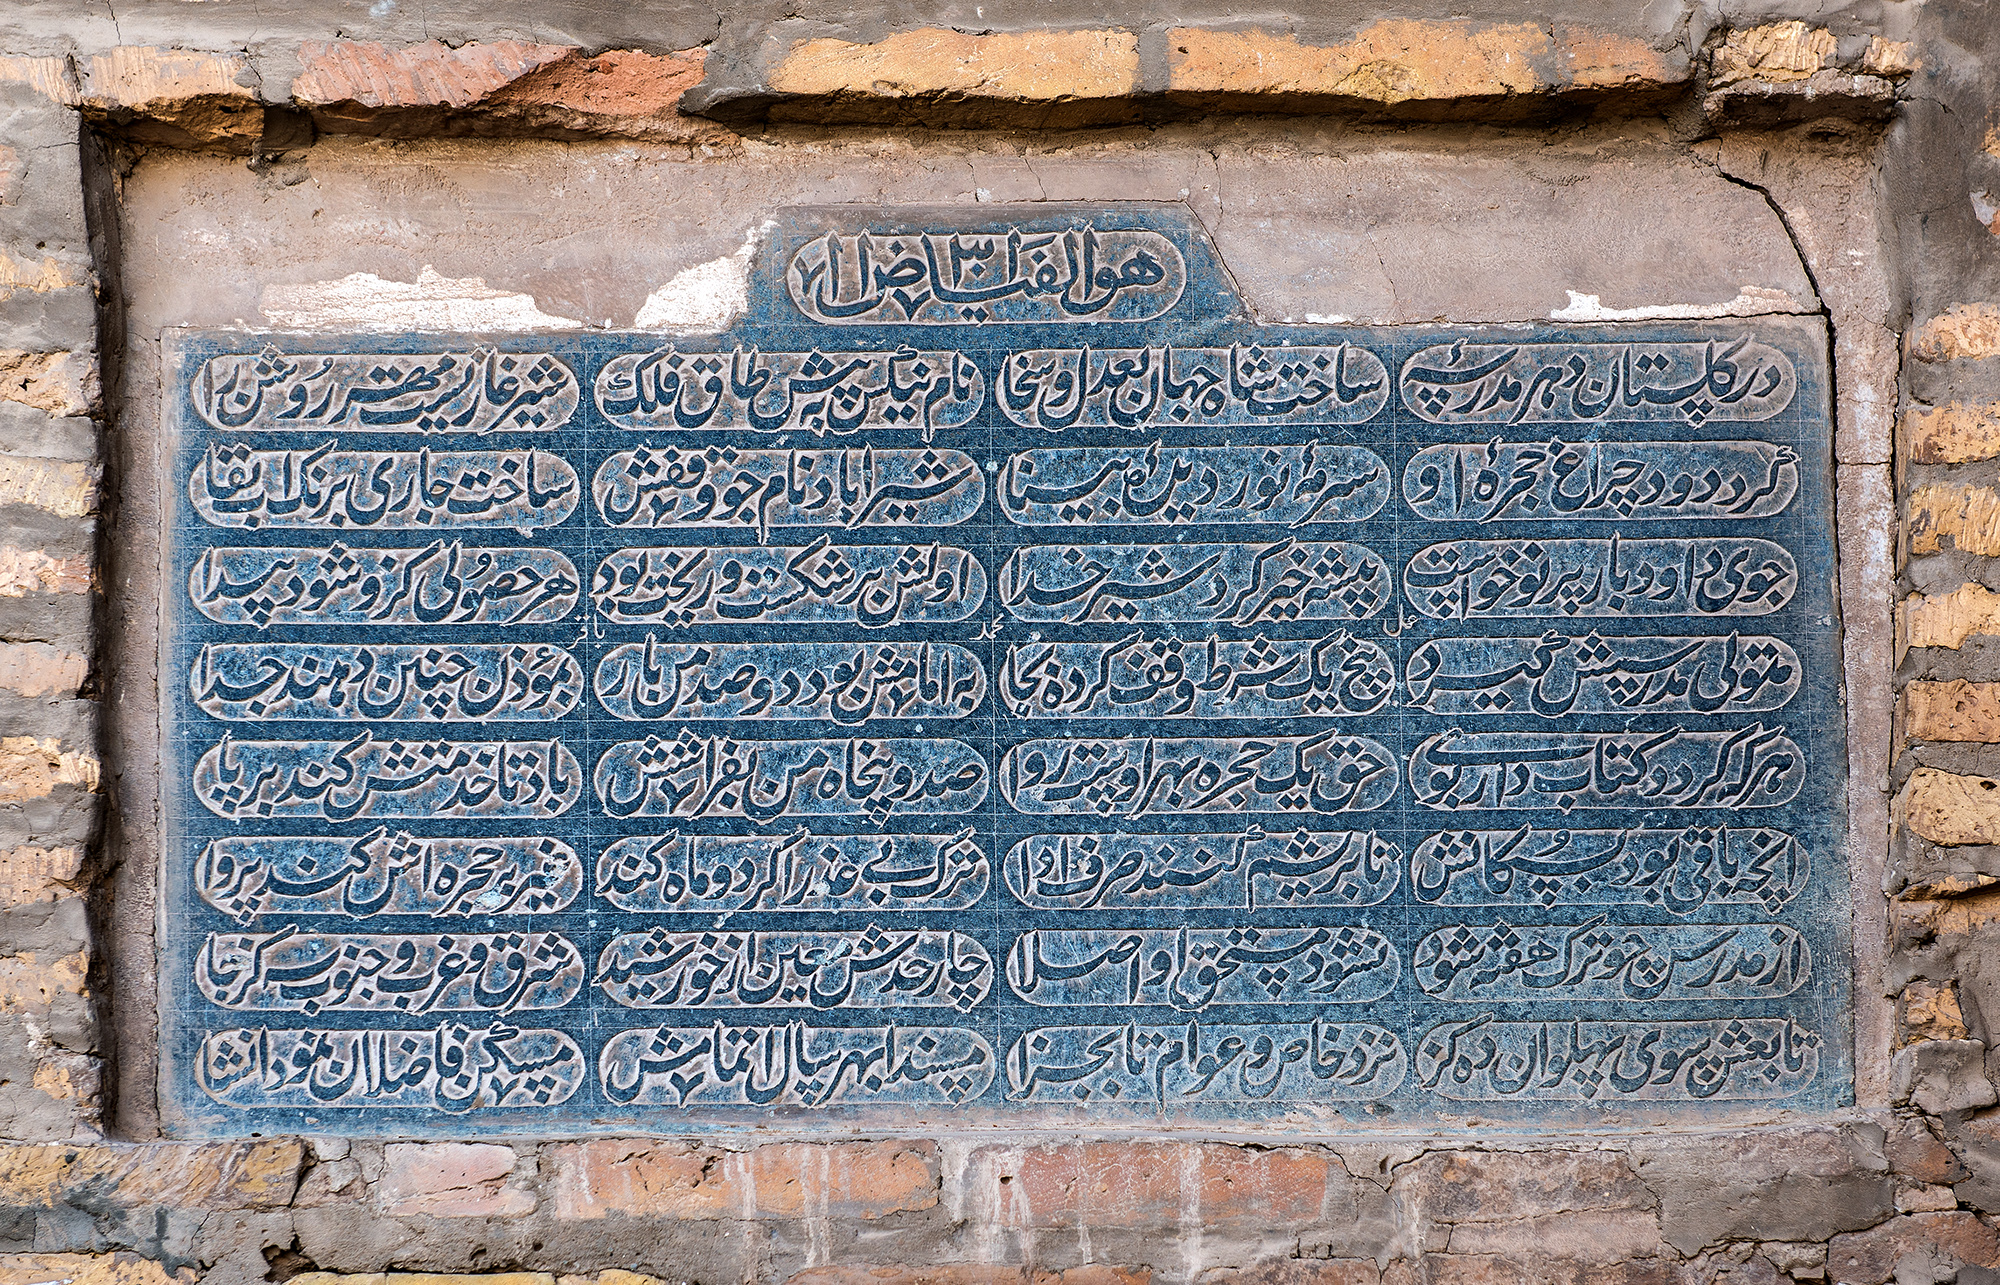 هو الفیاض
در گلستان دهر مدرسهٔ ساخت شاه جهان بعدل و سخا نام نیکش به پیش طاق فلک شیر غازیست مهتر روشن را
گردد دود چراغ حجرهٔ او سرمهٔ نور دیدهٔ بینا شیراباد نام جو وقفش ساخت جاری برنک اب بقا
جوی داود بار پیر نو خواست پیشهٔ خیر کرد شیر خدا اولش بر شکست و ریخت بود هر حصولی کزو شود پیدا
متولی مدرسیش گیرد پنج یک شرط وقف کرده بجا به امامش بود دو صد من بار مؤذن چنین دهند جدا
هر که گردد کتاب دار بوی حق یک حجره بهر او پندرو صد و پنجاه من بفراشش باد تا خدمتش کند بر پا
انچه باقی بود بسکانش تا بریشم کنند صرف ادا ترک بی عذر اگر دو ماه کند غیر بر حجره اش کند پروا
از مدرس چو ترک هفته شود نشود مستحق او اصلا چار حدش معین از خورشید شرق و غرب و جنوب
تابعش سوی پهلوان ده کز نزد خاص و عوام تا بجزا بهر سال اتمامش مسکن فاضلان